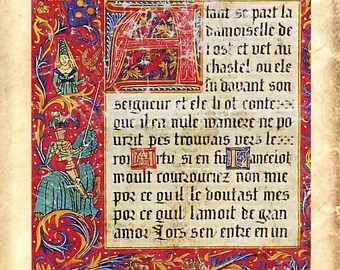 Atant se part la
damoiselle de
lost et vet au
chastel ou ele
su davant son
seigneur et ele li ot conte
que il en nule maniere ne po
urrit pes trouvais vers le
roi Artu si en fu Lanceiot
moult courouciez non mie
por ce quil le doutast mes
por ce quil lamoit de gran
amor Lors sen entre en un